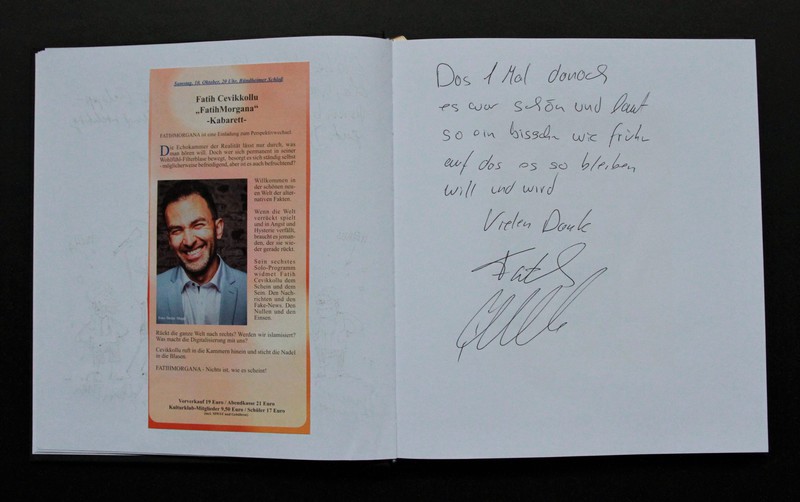 Samstag, 10. Oktober, 20 Uhr, Bündheimer Schloß
Fatih Cevikkollu
„FatihMorgana“
-Kabarett-
FATIHMORGANA ist eine Einladung zum Perspektivwechsel.
Die Echokammer der Realität lässt nur durch, was
man hören will. Doch wer sich permanent in seiner
Wohlfühl-Filterblase bewegt, besorgt es sich ständig selbst
- möglicherweise befriedigend, aber ist es auch befruchtend?
Willkommen in
der schönen neu-
en Welt der alter-
nativen Fakten.
Wenn die Welt
verrückt spielt
und in Angst und
Hysterie verfällt,
braucht es jeman-
den, der sie wie-
der gerade rückt.
Sein sechstes
Solo-Programm
widmet Fatih
Cevikkollu dem
Schein und dem
Sein. Den Nach-
richten und den
Fake-News. Den
Nullen und den
Einsen.
Rückt die ganze Welt nach rechts? Werden wir islamisiert?
Was macht die Digitalisierung mit uns?
Cevikkollu ruft in die Kammern hinein und sticht die Nadel
in die Blasen.
FATIHMORGANA - Nichts ist, wie es scheint!
Vorverkauf 19 Euro / Abendkasse 21 Euro
Kulturklub-Mitglieder 9,50 Euro / Schüler 17 Euro
Das 1 Mal danach
es war schön und laut
so ein bisschen wie früher
auf das es so bleiben
will und wird
Vielen Dank
Fatih